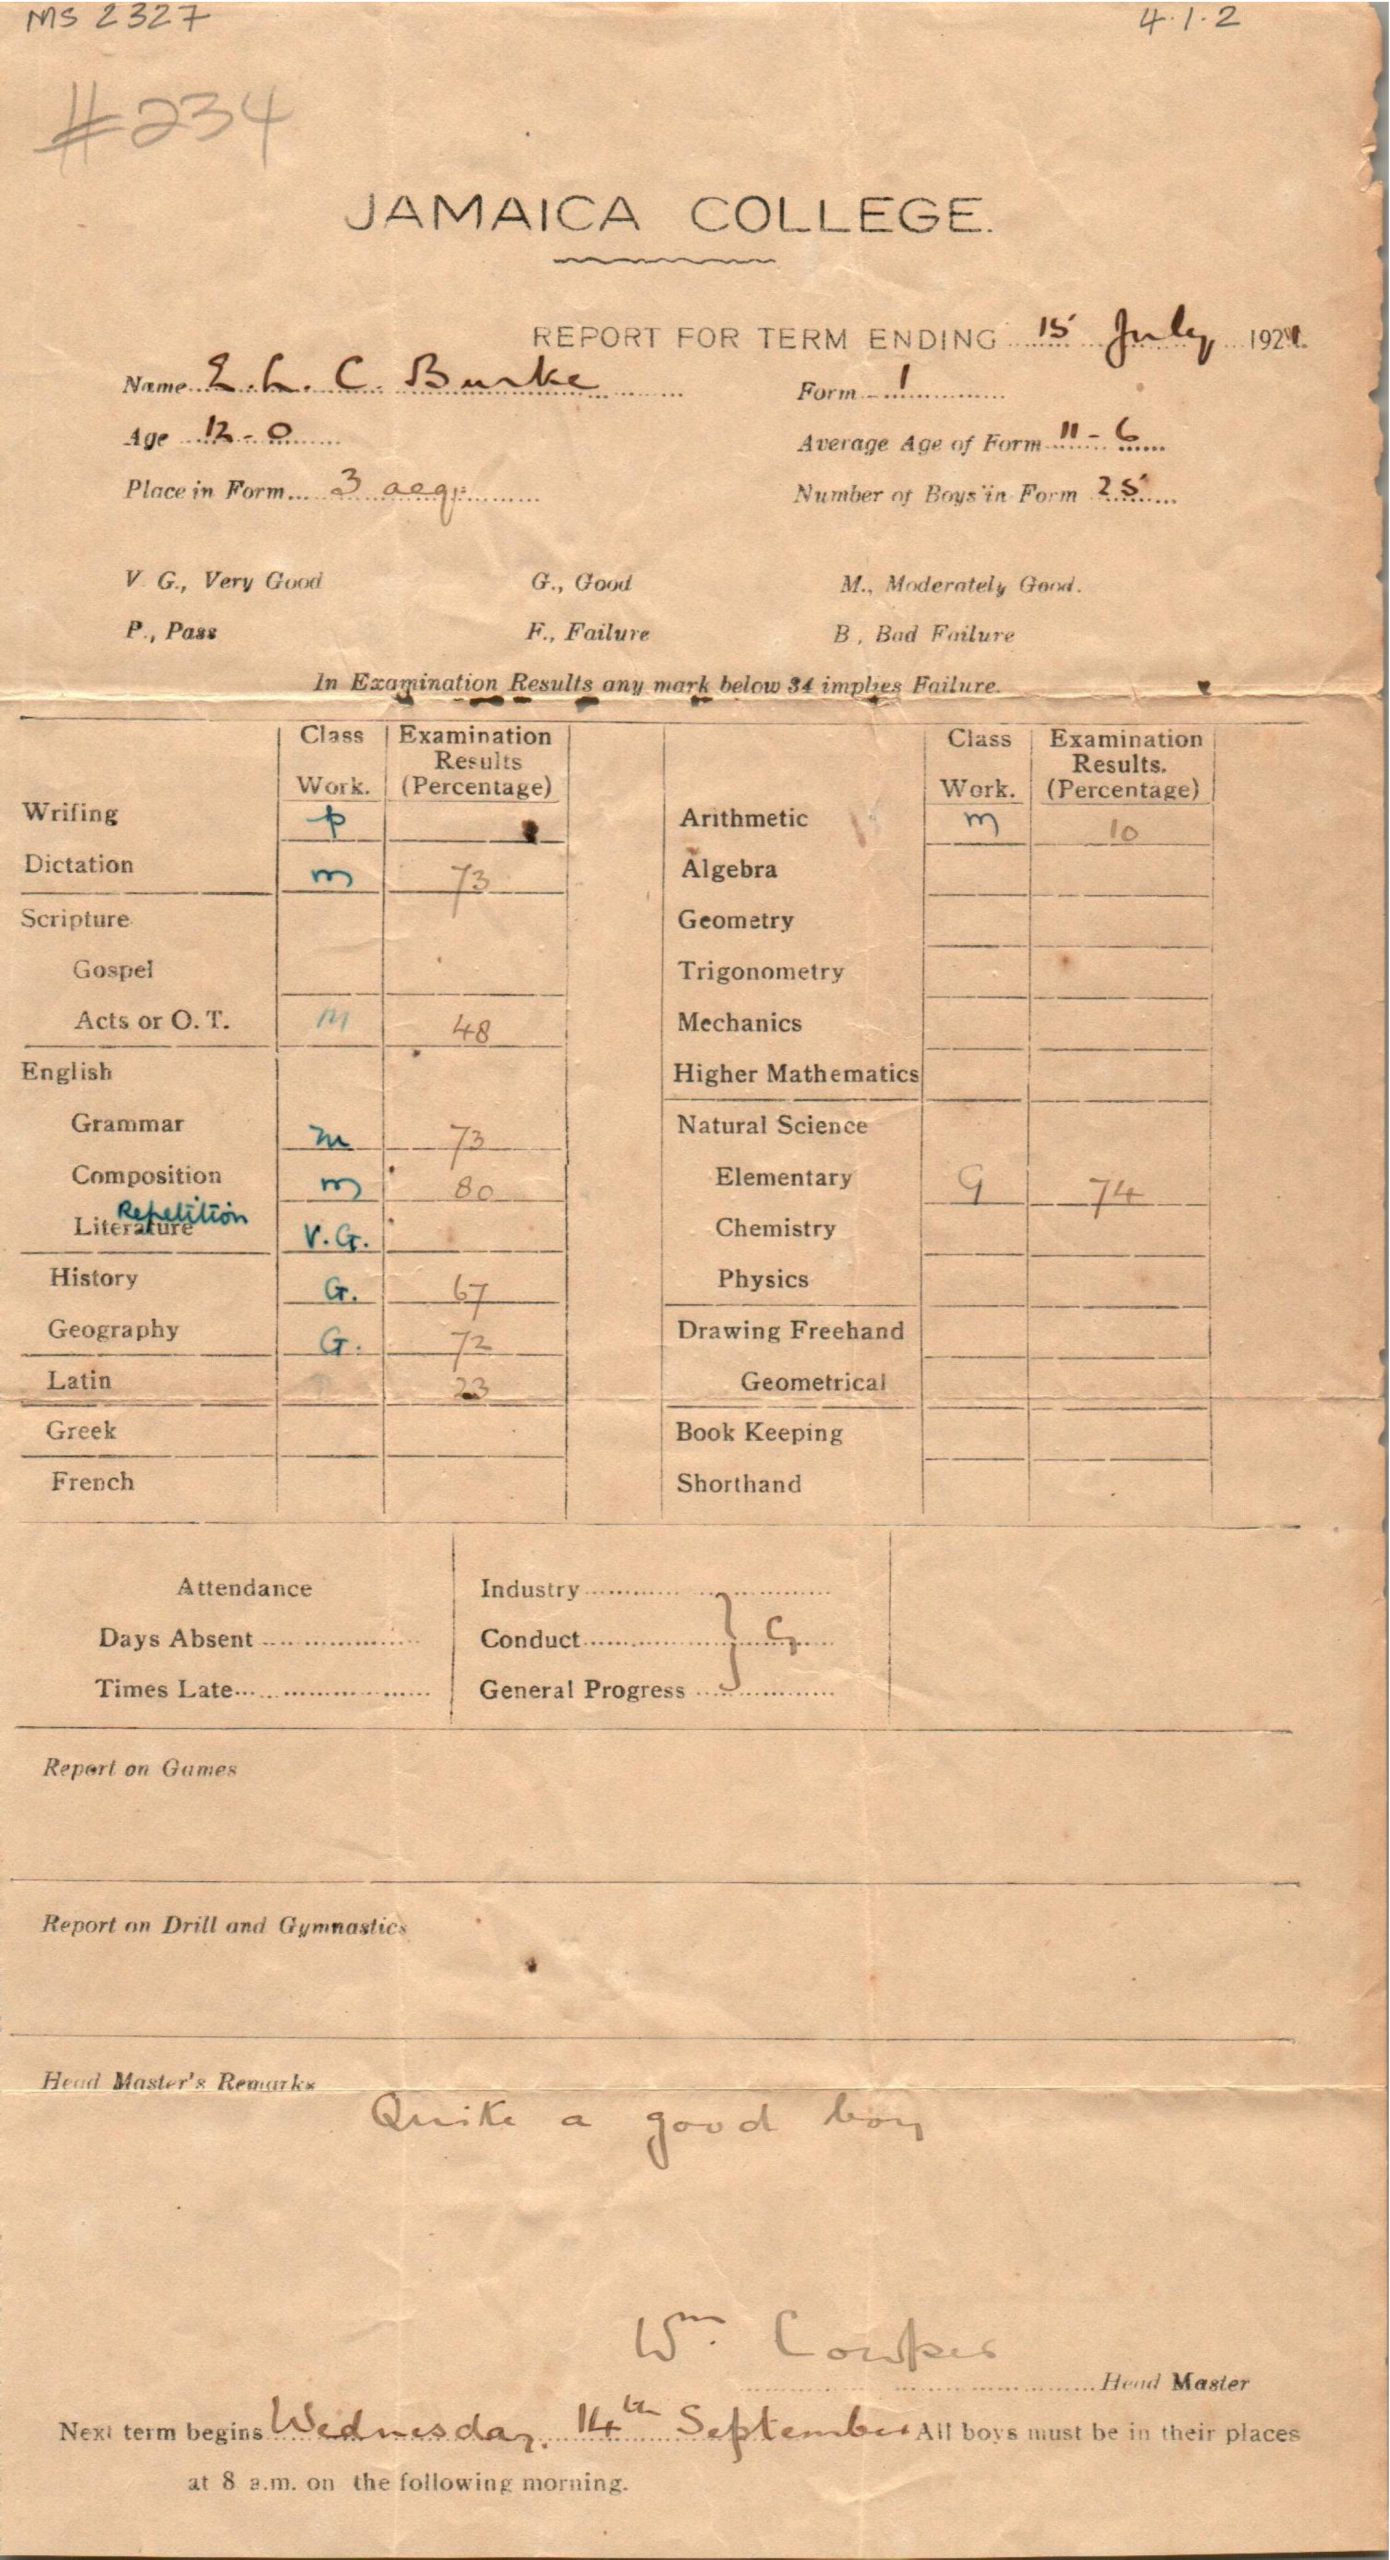 MS 2327 4.1.2
#234
JAMAICA COLLEGE.
REPORT FOR TERM ENDING 15 July 1921.
Name E. L. C. Burke Form 1
Age 12-0 Average Age of Form 11-6
Place in Form 3 aeq: Number of Boys in Form 25
V. G., Very Good G., Good M., Moderately Good.
P., Pass F., Failure B., Bad Failure
In Examination Results any mark below 34 implies Failure.
Class Work. Examination Results (Percentage) Class Work. Examination Results. (Percentage)
Writing p Arithmetic m 10
Dictation m 73 Algebra
Scripture Geometry
Gospel Trigonometry
Acts or O. T. M 48 Mechanics
English Higher Mathematics
Grammar m 73 Natural Science
Composition m 80 Elementary G 74
Repetition
Literature V.G. Chemistry
History G. 67 Physics
Geography G. 72 Drawing Freehand
Latin 23 Geometrical
Greek Book Keeping
French Shorthand
Attendance Industry
Days Absent Conduct } G
Times Late General Progress
Report on Games
Report on Drill and Gymnastics
Head Master's Remarks
Quite a good boy
Wm. Cowper
Head Master
Next term begins Wednesday, 14th September All boys must be in their places
at 8 a.m. on the following morning.